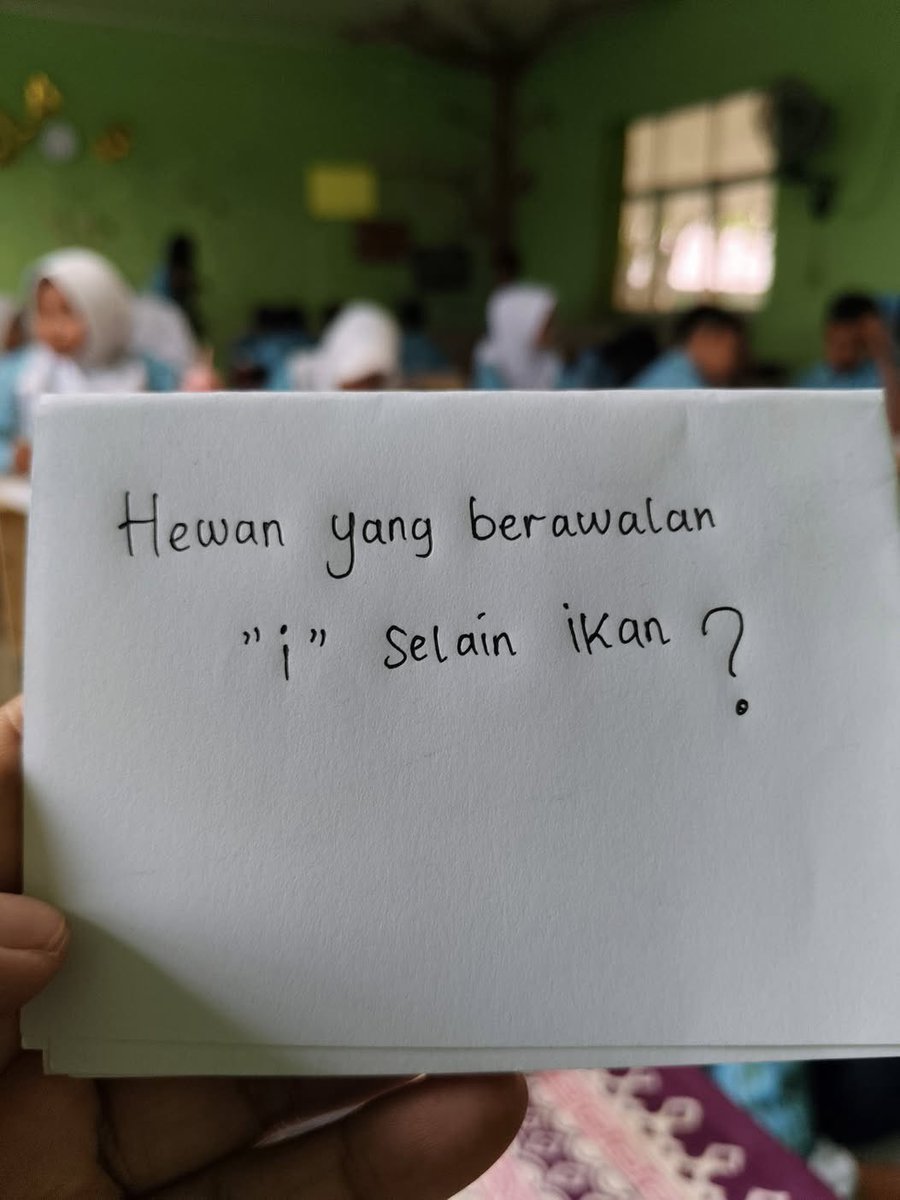 Hewan yang berawalan
"i" selain ikan ?